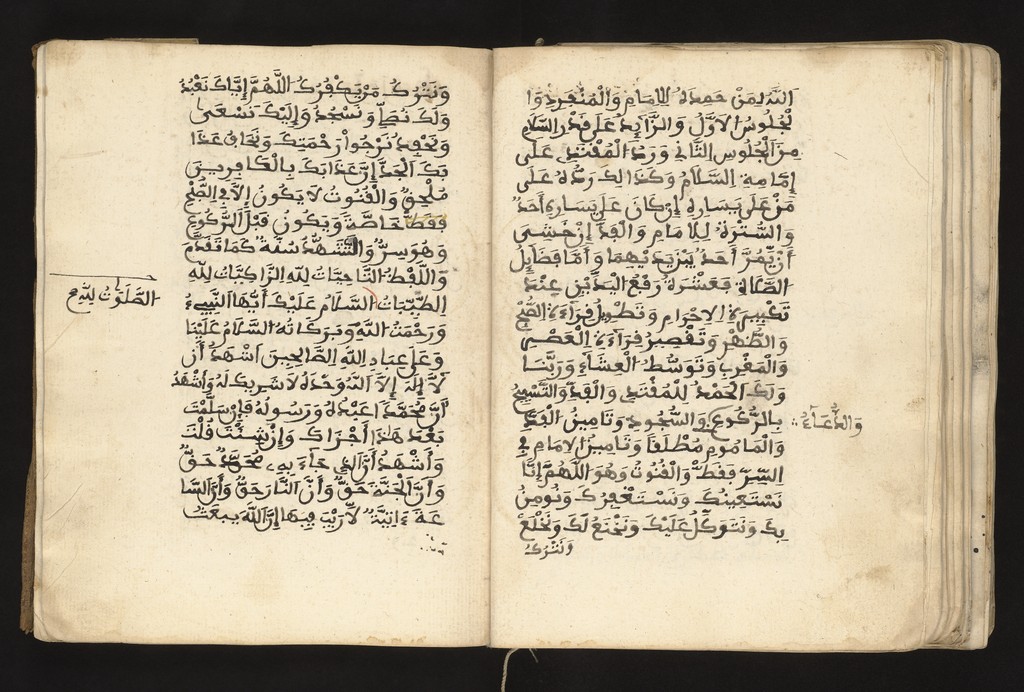 اللَّهُ لِمَنْ حَمِدَهُ لِلِامَامِ وَالْمُنْفَرِدِ وَا
لْجُلُوسُ الْاَوَّلُ وَالزَّايِدُ عَلَى قَدْرِ السَّلَامِ
مِنَ الْجُلُوسِ الثَّانِي وَرَدُّ الْمُقْتَدِي عَلَى
إِمَامِهِ السَّلَامُ وَكَذَالِكَ رَدُّهُ عَلَى
مَنْ عَلَى يَسَارِهِ إِنْ كَانَ عَلَى يَسَارِهِ أَحَدٌ
وَالسُّتْرَةُ لِلِامَامِ وَالْفَذِّ إِنْ خَشِيَ
أَنْ يَمُرَّ أَحَدٌ بَيْنَ يَدَيْهِمَا وَأَمَّا فَضَايِلُ
الصَّلَاةِ فَعَشَرَةٌ رَفْعُ الْيَدَيْنِ عِنْدَ
تَكْبِيرَةِ الِاحْرَامِ وَتَطْوِيلُ قِرَاءَةِ الصُّبْحِ
وَالظُّهْرِ وَتَقْصِيرُ قِرَاءَةِ الْعَصْرِ
وَالْمَغْرِبِ وَتَوَسُّطُ الْعِشَاءِ وَرَبَّنَا
وَلَكَ الْحَمْدُ لِلْمُقْتَدِي وَالْفَذِّ وَالتَّسْبِيحُ
بِالرُّكُوعِ وَالسُّجُودِ وَتَامِينُ الْفَذِّ
وَالدُّعَاءُ
وَالْمَامُومِ مُطْلَقًا وَتَامِينُ الِامَامِ فِي
السِّرِّ فَقَطْ وَالْقُنُوتُ وَهُوَ اللَّهُمَّ إِنَّا
نَسْتَعِينُكَ وَنَسْتَغْفِرُكَ وَنُومِنُ
بِكَ وَنَتَوَكَّلُ عَلَيْكَ وَنَخْنَعُ لَكَ وَنَخْلَعُ
وَنَتْرُكُ
وَنَتْرُكُ مَنْ يَكْفُرُكَ اللَّهُمَّ إِيَّاكَ نَعْبُدُ
وَلَكَ نُصَلِّي وَنَسْجُدُ وَإِلَيْكَ نَسْعَى
وَنَحْفِدُ نَرْجُوا رَحْمَتَكَ وَنَخَافُ عَذَا
بَكَ الْجِدَّ إِنَّ عَذَابَكَ بِالْكَافِرِينَ
مُلْحِقٌ وَالْقُنُوتُ لَا يَكُونُ إِلَّا فِي الصُّبْحِ
فَقَطْ خَاصَّةً وَيَكُونُ قَبْلَ الرُّكُوعِ
وَهُوَ سِرٌّ وَالتَّشَهُّدُ سُنَّةٌ كَمَا تَقَدَّمَ
وَاللَّفْظُ التَّاحِيَّاتُ لِلَّهِ الزَّاكِيَاتُ لِلَّهِ
الطَّيِّبَاتُ السَّلَامُ عَلَيْكَ أَيُّهَا النَّبِيءُ
الصَّلَوَاتُ لِلَّهِ صح
وَرَحْمَتُ اللَّهِ وَبَرَكَاتُهُ السَّلَامُ عَلَيْنَا
وَعَلَى عِبَادِ اللَّهِ الصَّالِحِينَ اَشْهَدُ أَن
لَّا إِلَهَ إِلَّا اللَّهُ وَحْدَهُ لَا شَرِيكَ لَهُ وَأَشْهَدُ
أَنَّ مُحَمَّدًا عَبْدُهُ وَرَسُولُهُ فَإِنْ سَلَّمْتَ
بَعْدَ هَذَا أَجْزَاكَ وَإِنْ شِئْتَ قُلْتَ
وَأَشْهَدُ أَنَّ الذِي جَاءَ بِهِ مُحَمَّدٌ حَقٌّ
وَأَنَّ الْجَنَّةَ حَقٌّ وَأَنَّ النَّارَ حَقٌّ وَأَنَّ السَّا
عَةَ ءَاتِيَةٌ لَا رَيْبَ فِيهَا إِنَّ اللَّهَ يَبْعَثُ